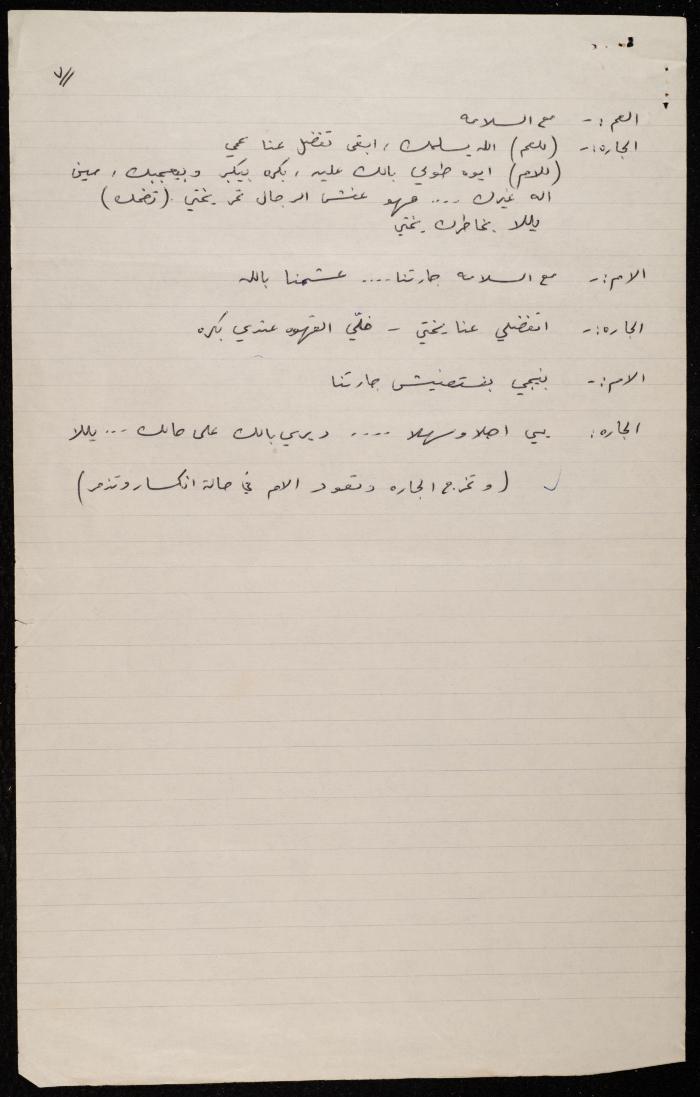 ٧//
العم :- مع السلامه
الجاره :- (للعم) الله يسلمك ، ابقى تفضل عنا عمي
(للام) ايوه طولي بالك عليه ، بكره بيكبر وبيعجبك ، مين
اله غيرك .... مهو عشر الرجال تمر يختي (تضحك)
يللا بخاطرك يختي
الام :- مع السلامه جارتنا .... عشمنا بالله
الجاره :- اتفضلي عنا يختي - خلّي القهوه عندي بكره
الام :- بنيجي بنستغنيش جارتنا
الجاره : يي اهلا وسهلا .... ديري بالك على حالك ... يللا
(وتخرج الجاره وتعود الام في حالة انكسار وتذمر)